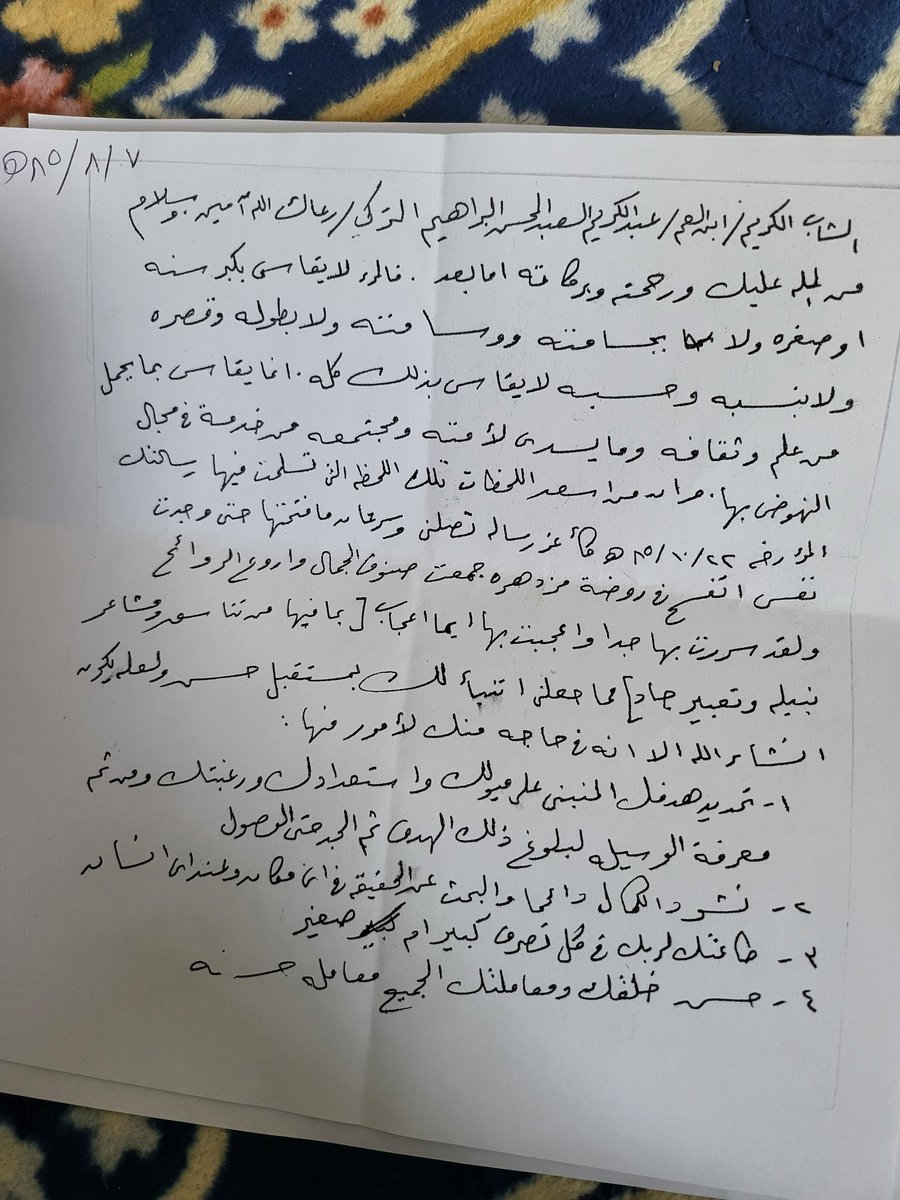 ٨٥/٨/٧ه
الشاب الكريم/ابن العم/عبدالكريم السعبد المحسن البراهيم التركي/رعاك الله آمين وسلام
من الله عليك ورحمته وبركاته اما بعد . فالمرء لا يقاس بكبر سنه
او صغره ولا بجسامته ووسامته ولا بطوله وقصره
ولا بنسبه وحسبه لا يقاس بذلك كله . انما يقاس بما يحمل
من علم وثقافه وما يسدى لأمته ومجتمعه من خدمة في مجال
النهوض بها . وان من اسعد اللحظات تلك اللحظه التى تسلمت فيها رسالتك
المؤرخه ٨٥/١٠/٢٢ه كأعز رساله تصلنى وسرعان ما فتحتها حتى وجدت
نفسى اتفسح في روضة مزدهره جمعت صنوف الجمال واروع الروائح
ولقد سررت بها جدا واعجبت بها ايما اعجاب [بما فيها من تناسق ومشاعر
نبيله وتعبير صادق] مما جعلنى اتنبأ لك بمستقبل حسن ولعله يكون
انشاء الله الا انه في حاجه منك لأمور منها :
١- تحديد هدفك المنبنى على ميولك واستعدادك ورغبتك ومن ثم
معرفة الوسيله لبلوغ ذلك الهدف ثم الجد حتى الوصول
٢- نشود الكمال دائما والبحث عن الحقيقه في اى مكان وعند اى انسان
٣- طاعتك لربك في كل تصرف كبير ام صغير
٤- حسن خلقك ومعاملتك الجميع معامله حسنه